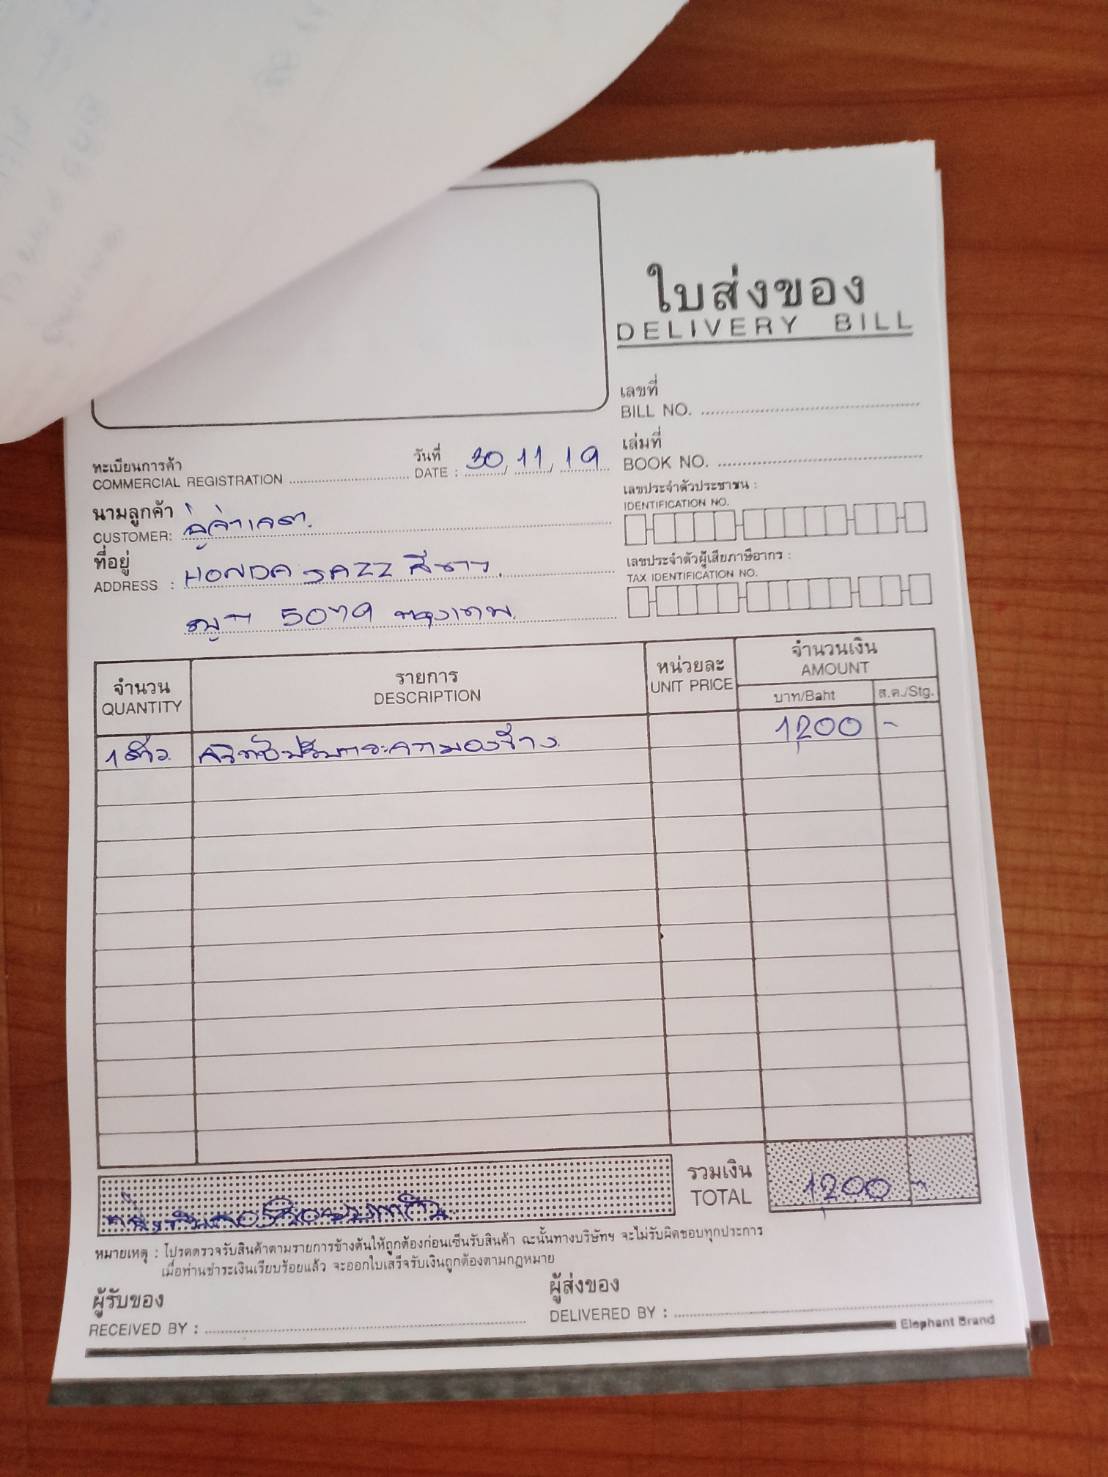 ใบส่งของ
DELIVERY BILL
เลขที่
BILL NO.
ทะเบียนการค้า
COMMERCIAL REGISTRATION
วันที่
DATE : 30/11/19
เล่มที่
BOOK NO.
นามลูกค้า
CUSTOMER:
เลขประจำตัวประชาชน :
IDENTIFICATION NO.
ที่อยู่
ADDRESS : HONDA JAZZ สีขาว
5079 กรุงเทพ
เลขประจำตัวผู้เสียภาษีอากร :
TAX IDENTIFICATION NO.
จำนวน
QUANTITY
รายการ
DESCRIPTION
หน่วยละ
UNIT PRICE
จำนวนเงิน
AMOUNT
บาท/Baht
ส.ต./Stg.
1 ตัว 1,200 -
หนึ่งพันสองร้อยบาทถ้วน
รวมเงิน
TOTAL
1,200 -
หมายเหตุ : โปรดตรวจรับสินค้าตามรายการข้างต้นให้ถูกต้องก่อนเซ็นรับสินค้า ฉะนั้นทางบริษัทฯ จะไม่รับผิดชอบทุกประการ
เมื่อท่านชำระเงินเรียบร้อยแล้ว จะออกใบเสร็จรับเงินถูกต้องตามกฎหมาย
ผู้รับของ
RECEIVED BY :
ผู้ส่งของ
DELIVERED BY :
Elephant Brand